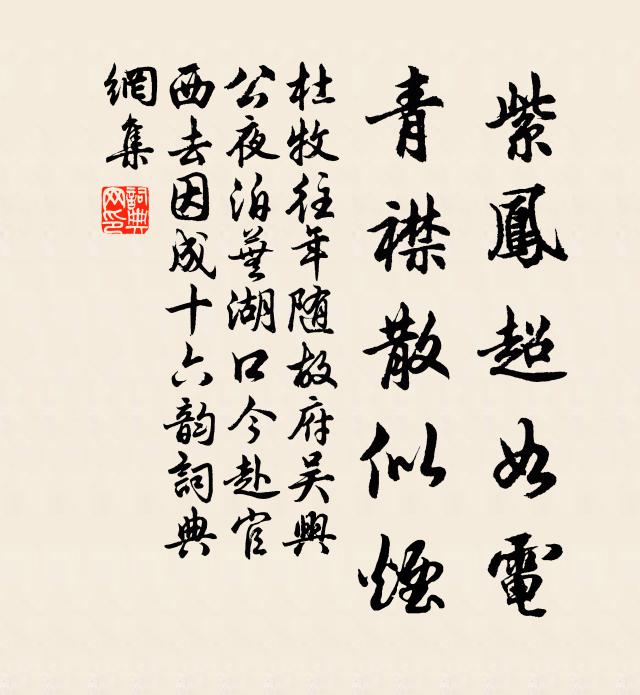 紫鳳超如電
青襟散似煙
杜牧往年随故府吴興
公夜泊蕪湖口今赴官
西去因成十六韵詞典
網集
詞典
网印